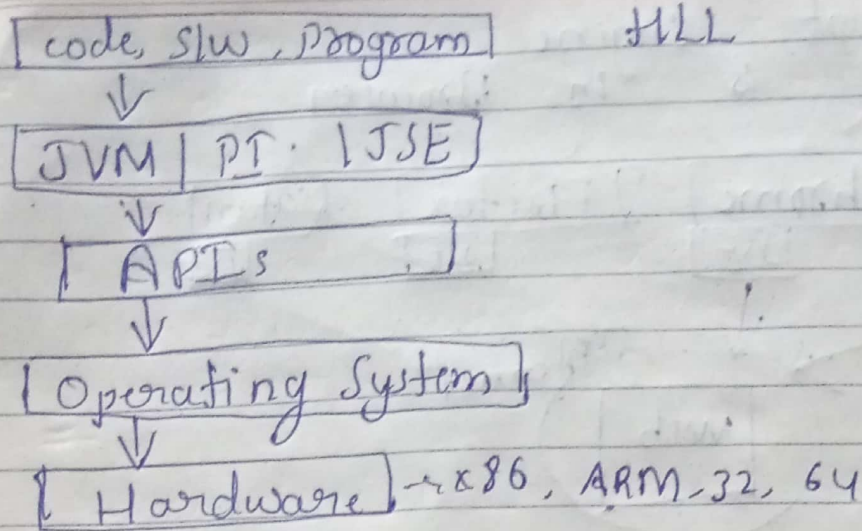 code, S/W, Program HLL
JVM | PI. | JSE
APIs
Operating System
Hardware x86, ARM-32, 64